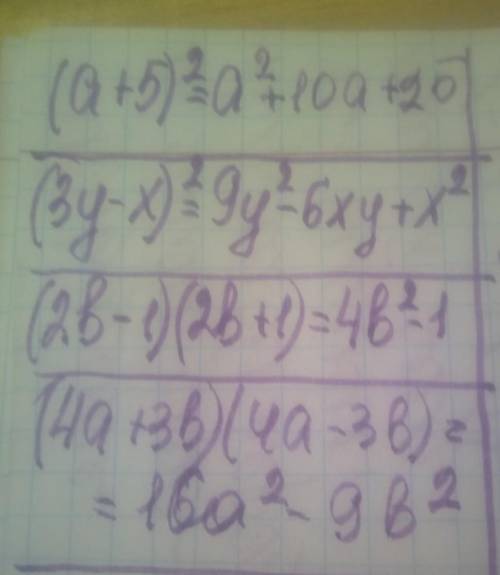 (a+5)²=a²+10a+25
(3y-x)²=9y²-6xy+x²
(2b-1)(2b+1)=4b²-1
(4a+3b)(4a-3b)=
=16a²-9b²